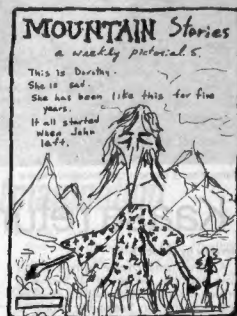 MOUNTAIN Stories
a weekly pictorial. 5.
This is Dorothy.
She is sad.
She has been like this for five
years.
It all started
when John
left.